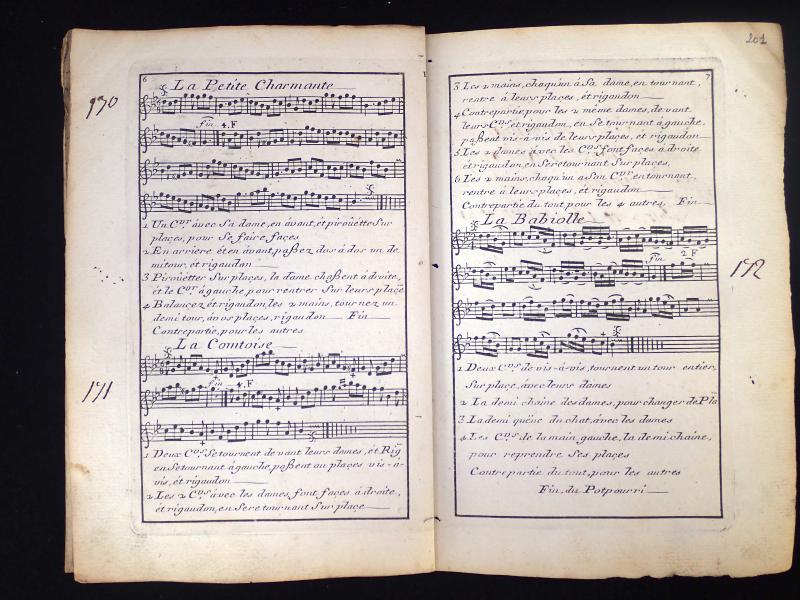 6
La Petite Charmante
170
Fin 4.F
1 Un C.er àvec Sa dame, en àvant, èt piroüètte Sur
places, pour Se faire faces
2 En arriere èt en àvant, paßez dos à dos un de
mi tour, èt rigaudon
3 Piroüetter Sur places, la dame chaßent à droite,
èt le C.er à gauche, pour rentrer Sur leurs place
4 Balancez èt rigaudon, les 2 mains, tournez un
demi tour, à vos places, rigaudon Fin
Contrepartie, pour les autres
La Comtoise
171
Fin 4.F
1 Deux C.ers Se tournent de vant leurs dames, èt Rig
en Se tournant à gauche, paßent au places vis-a-
vis, èt rigaudon
2 Les 2 C.ers àvec les dames, font faces à droite,
èt rigaudon, en Se retournant Sur place
201
7
3 Les 2 mains, chaqu'un à Sa dame, en tournant,
rentre à leurs places, èt rigaudon
4 Contrepartie pour les 2 même dames, de vant
leurs C.ers èt rigaudon, en Se tournant à gauche,
paßent vis-à-vis de leurs places, èt rigaudon
5 Les 2 dames àvec les C.ers font faces à droite
èt rigaudon, en Se retournant Sur places,
6 Les 2 mains, chaqu'un a Son C.er en tournant,
rentre à leurs places, èt rigaudon
Contrepartie du tout, pour les 4 autres, Fin
La Babiolle
Fin 2 F
172
1 Deux C.ers de vis-à-vis, tournent un tour entier,
Sur place, àvec leurs dames
2 La demi chaine des dames, pour changer de Pla
3 La demi queüe du chat, àvec les dames
4 Les C.ers de la main gauche, la demi chaine,
pour reprendre Ses places
Contrepartie du tout, pour les autres
Fin, du Potpourri